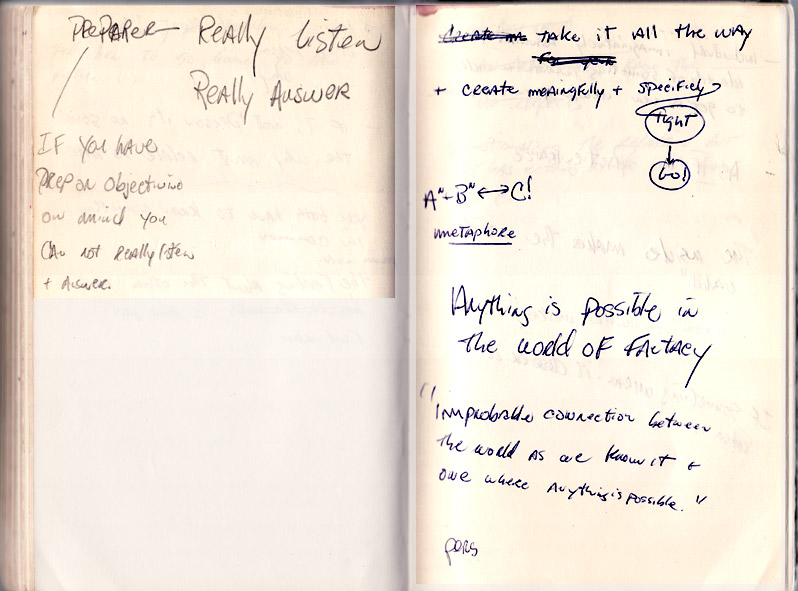 Really Listen
Really Answer
IF You have
PREP an Objective
on mind you
CAN not Really listen
+ Answer.
take it all the way
+ create meaningfully + specificly
tight
Go!
Aᴺ + Bᴺ ↔ C!
metaphore
Anything is possible in
the world of FANTACY
"Improbable connection between
the world as we know it +
one where Anything is possible."